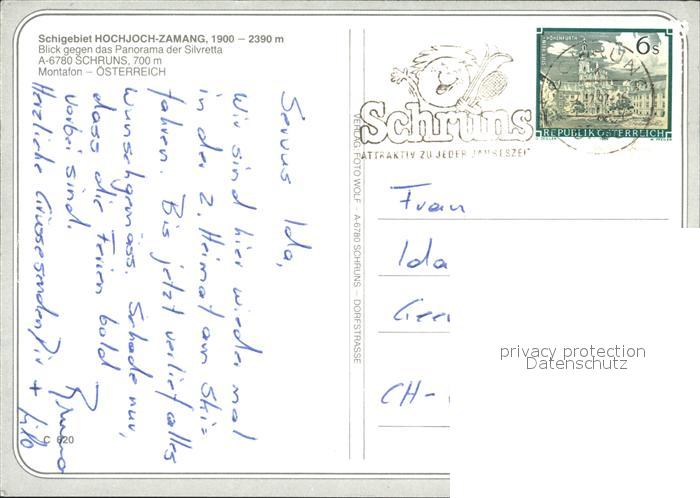 Schigebiet HOCHJOCH-ZAMANG, 1900 – 2390 m
Blick gegen das Panorama der Silvretta
A-6780 SCHRUNS, 700 m
Montafon – ÖSTERREICH
Servus Ida,
Wir sind hier wieder mal
in der 2. Heimat am Ski=
fahren. Bis jetzt verlief alles
wunschgemäss. Schade nur,
dass die Ferien bald
vorbei sind.
Herzliche Grüsse senden Dir
Bruno + Lilo
C 620
VERLAG: FOTO WOLF – A-6780 SCHRUNS – DORFSTRASSE
Schruns
ATTRAKTIV ZU JEDER JAHRESZEIT
STIFT REIN-HOHENFURTH
6 S
REPUBLIK ÖSTERREICH
Frau
Ida
CH-
privacy protection
Datenschutz